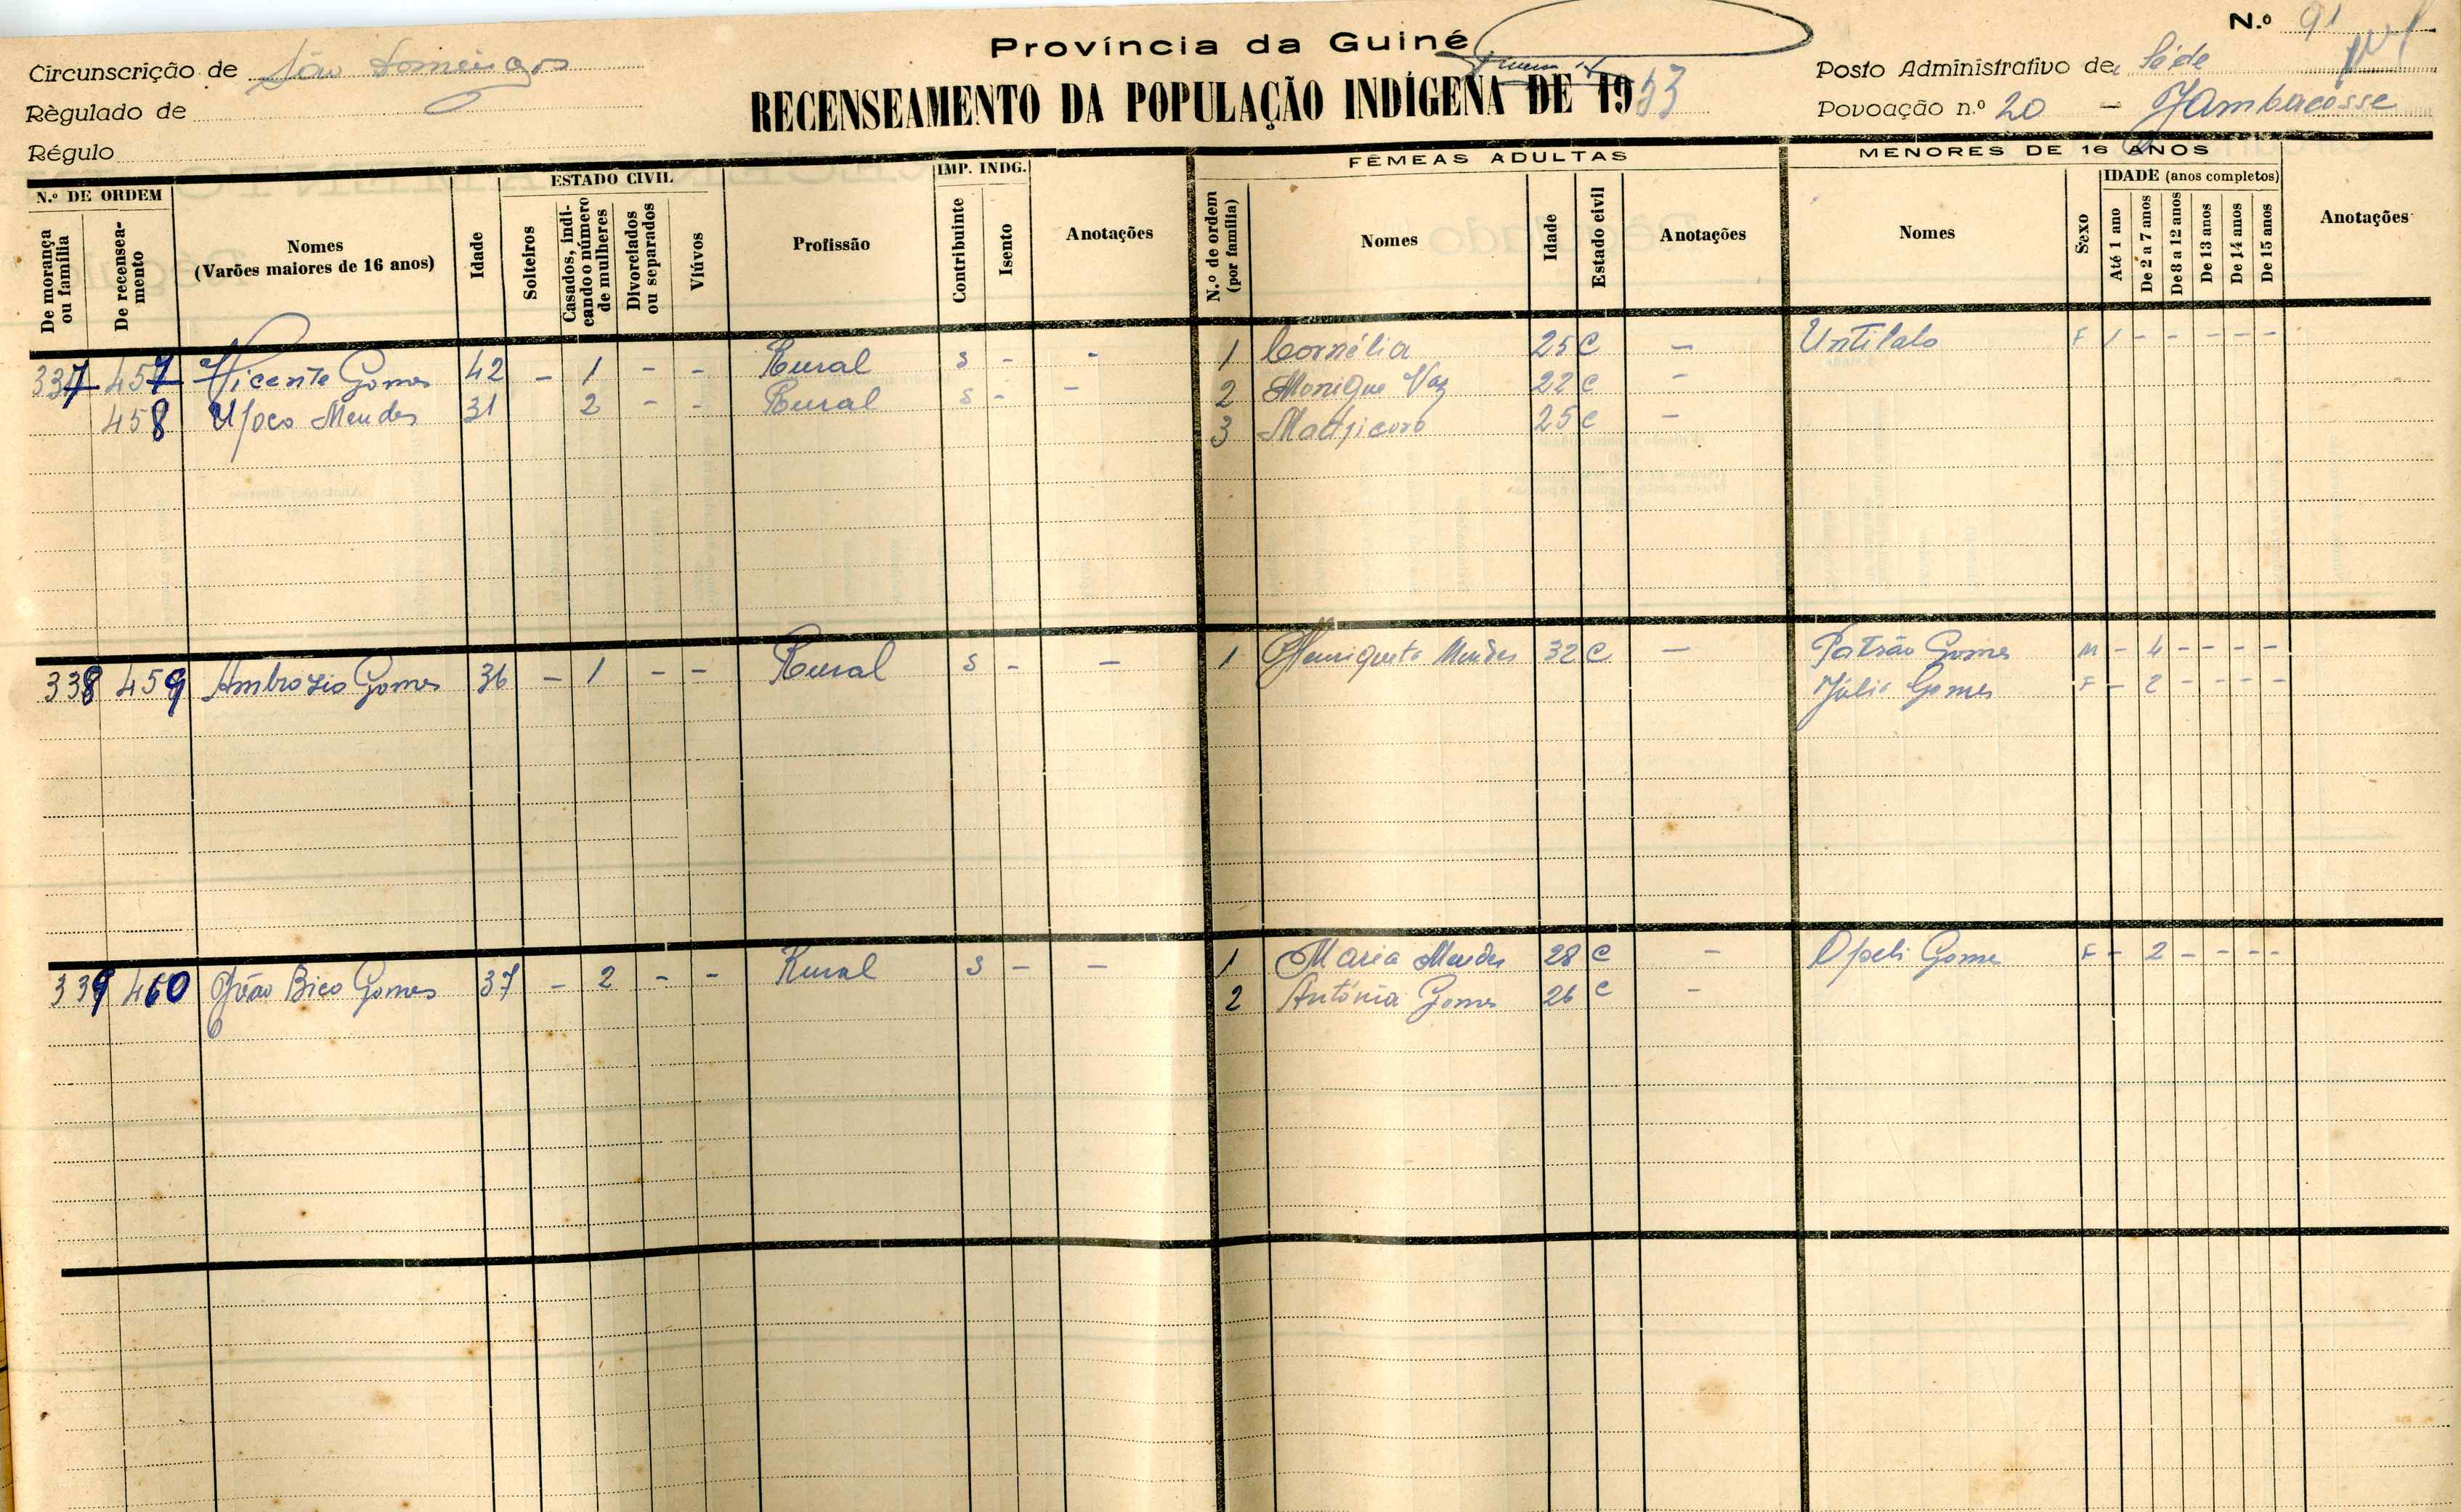 Província da Guiné
N.º 91
Circunscrição de São Domingos
Posto Administrativo de Séde
Règulado de
RECENSEAMENTO DA POPULAÇÃO INDÍGENA DE 1953
Povoação n.º 20 - Jambacosse
Régulo
N.º DE ORDEM
De morança ou família
De recenseamento
Nomes
(Varões maiores de 16 anos)
Idade
ESTADO CIVIL
Solteiros
Casados, indicando o número de mulheres
Divorciados ou separados
Viúvos
Profissão
IMP. INDG.
Contribuinte
Isento
Anotações
FÊMEAS ADULTAS
N.º de ordem (por família)
Nomes
Idade
Estado civil
Anotações
MENORES DE 16 ANOS
Nomes
Sexo
IDADE (anos completos)
Até 1 ano
De 2 a 7 anos
De 8 a 12 anos
De 13 anos
De 14 anos
De 15 anos
Anotações
337 457 Vicente Gomes 42 - 1 - - Rural S - - 1 Cornélia 25 C - Untilalo F 1 - - - - -
458 Upoco Mendes 31 2 - - Rural S - - 2 Monique Vaz 22 C -
3 Madjicoro 25 C -
338 459 Ambrozio Gomes 36 - 1 - - Rural S - - 1 Henriqueta Mendes 32 C - Patrão Gomes M - 4 - - - -
Júlia Gomes F - 2 - - - -
339 460 João Bico Gomes 37 - 2 - - Rural S - - 1 Maria Mendes 28 C - Opeli Gomes F - 2 - - - -
2 Antónia Gomes 26 C -